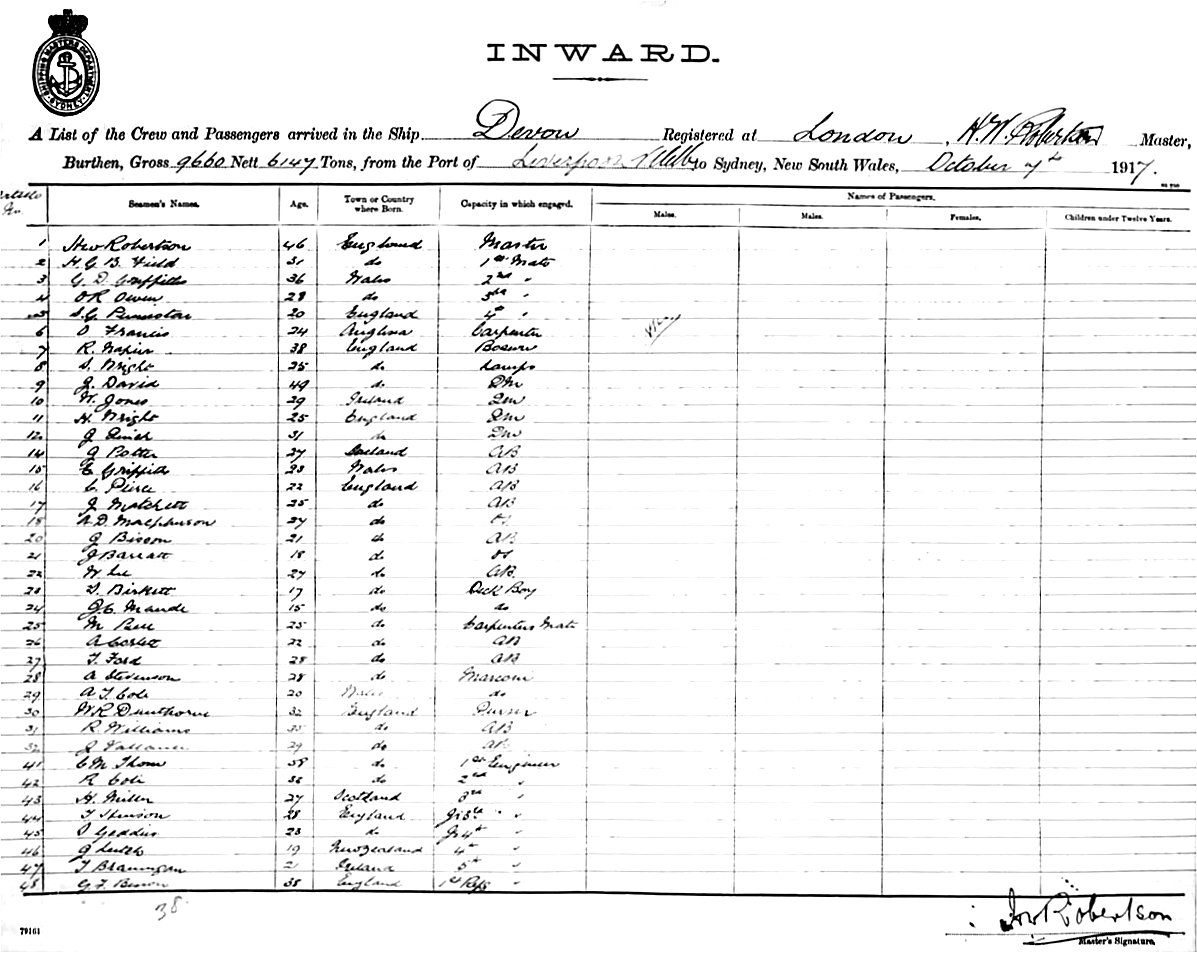 SHIPPING MASTERS DEPARTMENT SYDNEY
INWARD.
A List of the Crew and Passengers arrived in the Ship Devon Registered at London, H.W. Robertson Master,
Burthen, Gross 9660 Nett 6147 Tons, from the Port of Liverpool to Sydney, New South Wales, October 7th 1917.
No. Seamen's Names. Age. Town or Country where Born. Capacity in which engaged. Names of Passengers.
Males. Males. Females. Children under Twelve Years.
1 Robertson 46 England Master
2 H. G. B. Field 31 do 1st Mate
3 G. D. Griffiths 36 Wales 2nd "
4 O R Owen 28 do 3rd "
5 S. G. 20 England 4th "
6 O Francis 24 Carpenter
7 R. Napier 38 England Bosun
8 S. Bright 25 do Lamps
9 J. David 49 do QM
10 W. Jones 29 Ireland QM
11 H. Wright 25 England QM
12 J 31 do QM
14 J Potter 27 AB
15 E Griffith 23 Wales AB
16 C. Pierce 22 England AB
17 J. Matchett 25 do AB
18 A. D. Macpherson 24 do
20 J Bisson 21 do AB
21 J Barratt 18 do OS
22 W Lee 27 do AB.
23 S. Birkett 17 do Deck Boy
24 J. C. Maude 15 do do
25 M 25 do Carpenters Mate
26 A Corlett 22 do AB
27 T. Ford 28 do AB
28 A Stevenson 28 do Marconi
29 A. T. Cole 20 Wales do
30 W R Dunthorne 32 England Purser
31 R. Williams 35 do AB
32 J 29 do AB
41 C M Thom 58 do 1st Engineer
42 R Cole 36 do 2nd "
43 H. Miller 27 Scotland 3rd "
44 T 28 England Jr 3rd "
45 Geddis 23 do Jr 4th "
46 J Leitch 19 New Zealand 4th "
47 T Brannigan 21 Ireland 5th "
48 G. F. 38 England 1st Refr "
38
Robertson
79161 Master's Signature.